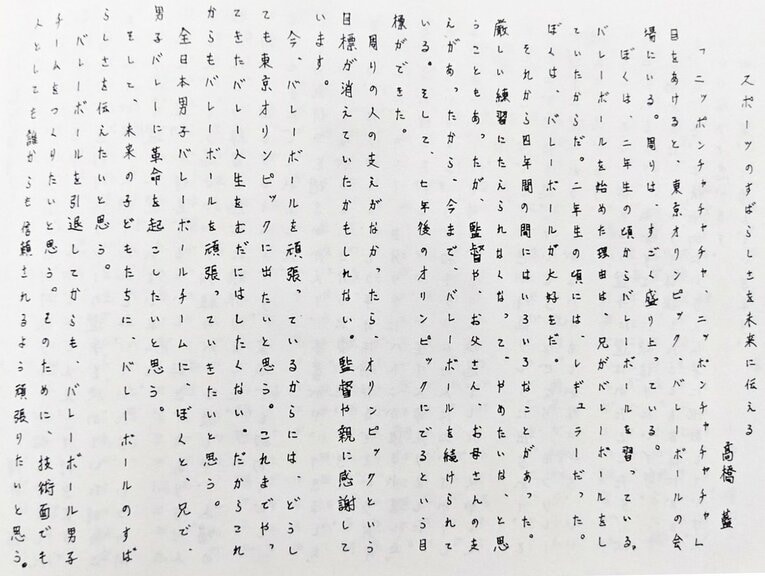 スポーツのすばらしさを未来に伝える
髙橋 藍
「ニッポンチャチャチャ、ニッポンチャチャチャ」
目をあけると、東京オリンピック、バレーボールの会
場にいる。周りは、すごく盛り上っている。
ぼくは、二年生の頃からバレーボールを習っている。
バレーボールを始めた理由は、兄がバレーボールをし
ていたからだ。二年生の頃には、レギュラーだった。
ぼくは、バレーボールが大好きだ。
それから四年間の間にはいろいろなことがあった。
厳しい練習にたえられなくなって、やめたいな、と思
うこともあったが、監督や、お父さん、お母さんの支
えがあったから、今まで、バレーボールを続けられて
いる。そして、七年後のオリンピックにでるという目
標ができた。
周りの人の支えがなかったらオリンピックという
目標が消えていたかもしれない。監督や親に感謝して
います。
今、バレーボールを頑張っているからには、どうし
ても東京オリンピックに出たいと思う。これまでやっ
てきたバレー人生をむだにはしたくない。だからこれ
からもバレーボールを頑張っていきたいと思う。
全日本男子バレーボールチームに、ぼくと、兄で、
男子バレーに革命を起こしたいと思う。
そして、未来の子どもたちに、バレーボールのすば
らしさを伝えたいと思う。
バレーボールを引退してからも、バレーボール男子
チームをつくりたいと思う。そのために、技術面でも
人としても誰からも信頼されるよう頑張りたいと思う。